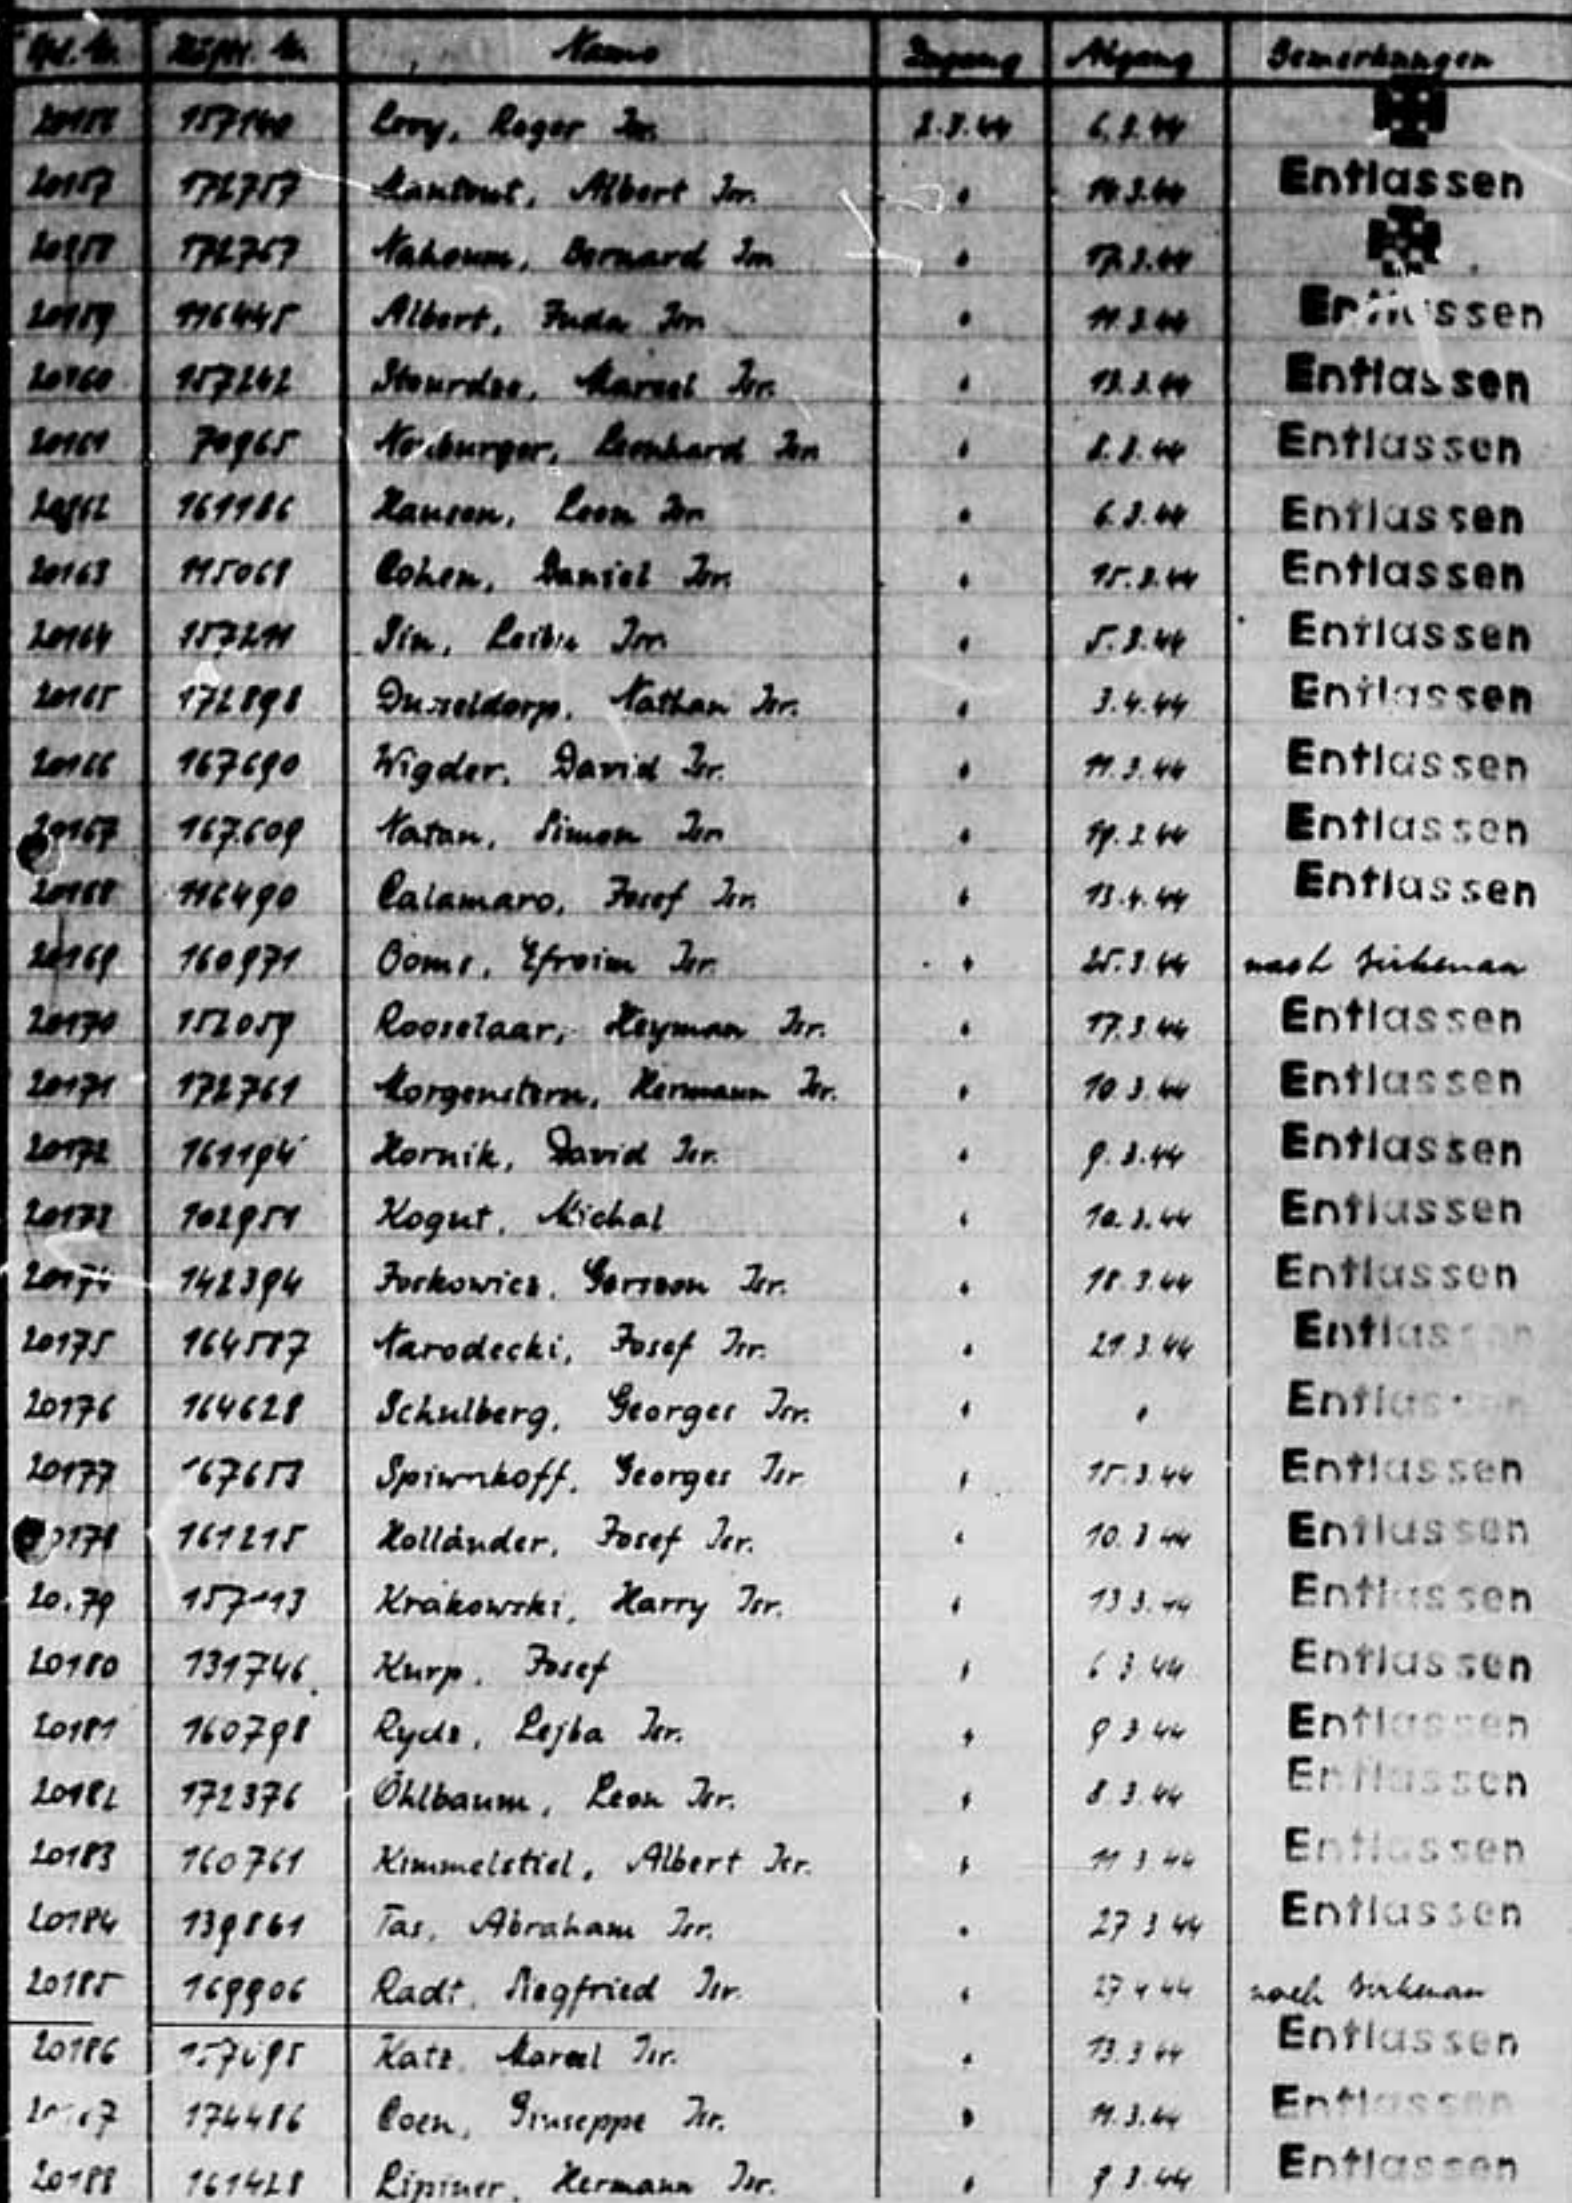 Name Zugang Abgang Bemerkungen
20156 157140 Levy, Roger Isr. 2.3.44 6.3.44
20157 172757 Albert Isr. " 14.3.44 Entlassen
20158 172767 Nahoum, Bernard Isr. " 17.3.44
20159 116445 Albert, Juda Isr. " 11.3.44 Entlassen
20160 157242 Stourdze, Marcel Isr. " 13.3.44 Entlassen
20161 70965 Neuburger, Leonhard Isr. " 8.3.44 Entlassen
20162 161186 Hausen, Leon Isr. " 6.3.44 Entlassen
20163 115068 Cohen, Daniel Isr. " 15.3.44 Entlassen
20164 157211 Sin, Isr. " 5.3.44 Entlassen
20165 172898 Dusseldorp, Nathan Isr. " 3.4.44 Entlassen
20166 167690 Wigder, David Isr. " 11.3.44 Entlassen
20167 167609 Natan, Simon Isr. " Entlassen
20168 116490 Calamaro, Josef Isr. " 13.4.44 Entlassen
20169 160971 Ooms, Efroim Isr. " 25.3.44 nach Birkenau
20170 152059 Rooselaar, Heyman Isr. " 17.3.44 Entlassen
20171 172761 Morgenstern, Hermann Isr. " 10.3.44 Entlassen
20172 161194 Hornik, David Isr. " 9.3.44 Entlassen
20173 102951 Kogut, Michal " 10.3.44 Entlassen
20174 142394 Joskowicz, Gerszon Isr. " 18.3.44 Entlassen
20175 164587 Narodecki, Josef Isr. " 21.3.44 Entlassen
20176 164628 Schulberg, Georges Isr. " " Entlassen
20177 167653 Georges Isr. " 15.3.44 Entlassen
20178 161215 Holländer, Josef Isr. " 10.3.44 Entlassen
20179 Krakowski, Harry Isr. " 13.3.44 Entlassen
20180 131746 Kurp, Josef " 6.3.44 Entlassen
20181 160798 Rydz, Lejba Isr. " 9.3.44 Entlassen
20182 172376 Öhlbaum, Leon Isr. " 8.3.44 Entlassen
20183 160761 Kimmelstiel, Albert Isr. " 11.3.44 Entlassen
20184 139861 Tas, Abraham Isr. " 27.3.44 Entlassen
20185 169906 Radt, Siegfried Isr. " 27.4.44 nach Birkenau
20186 Katz, Marcel Isr. " 13.3.44 Entlassen
174486 Coen, Giuseppe Isr. " 11.3.44 Entlassen
20188 161428 Lipiner, Hermann Isr. " 9.3.44 Entlassen